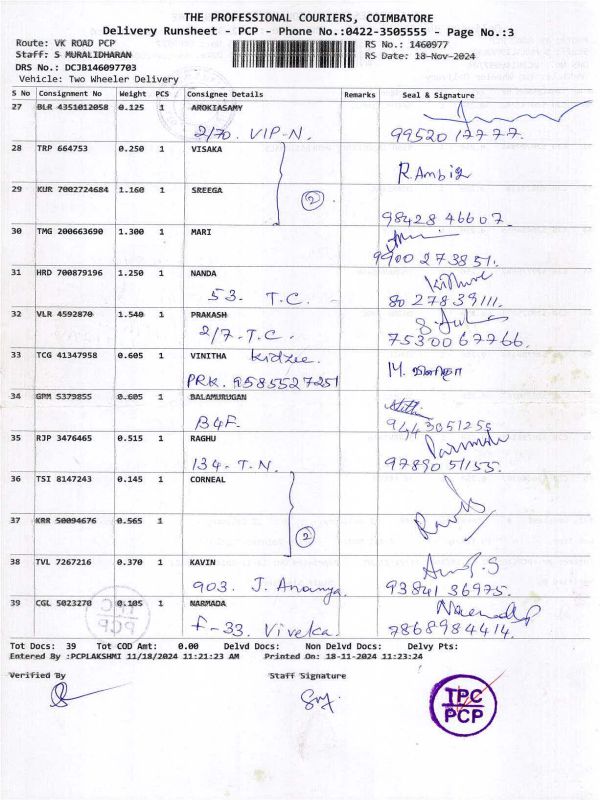 THE PROFESSIONAL COURIERS, COIMBATORE
Delivery Runsheet - PCP - Phone No.:0422-3505555 - Page No.:3
Route: VK ROAD PCP RS No.: 1460977
Staff: S MURALIDHARAN RS Date: 18-Nov-2024
DRS No.: DCJB146097703
Vehicle: Two Wheeler Delivery
S No Consignment No Weight PCS Consignee Details Remarks Seal & Signature
27 BLR 4351012058 0.125 1 AROKIASAMY
2/70. VIP-N. 99520 17777.
28 TRP 664753 0.250 1 VISAKA
R.Ambig
29 KUR 7002724684 1.160 1 SREEGA
2
98428 46607.
30 TMG 200663690 1.300 1 MARI
9900 273851.
31 HRD 700879196 1.250 1 NANDA
53. T.C. 80 27839111.
32 VLR 4592870 1.540 1 PRAKASH
2/7-T.C. 75300 67766.
33 TCG 41347958 0.605 1 VINITHA Kidzee.
PRK. 9585527251 M. வினிதா
34 GPM 5379855 0.605 1 BALAMURUGAN
B4F. 9443051255
35 RJP 3476465 0.515 1 RAGHU
134-T.N. 97890 51155.
36 TSI 8147243 0.145 1 CORNEAL
37 KRR 50094676 0.565 1
2
38 TVL 7267216 0.370 1 KAVIN
903. J. Ananya. 93841 36975.
39 CGL 5023270 0.105 1 NARMADA
F-33. Viveka. 7868984414.
Tot Docs: 39 Tot COD Amt: 0.00 Delvd Docs: Non Delvd Docs: Delvy Pts:
Entered By :PCPLAKSHMI 11/18/2024 11:21:23 AM Printed On: 18-11-2024 11:23:24
Verified By Staff Signature
TPC
PCP